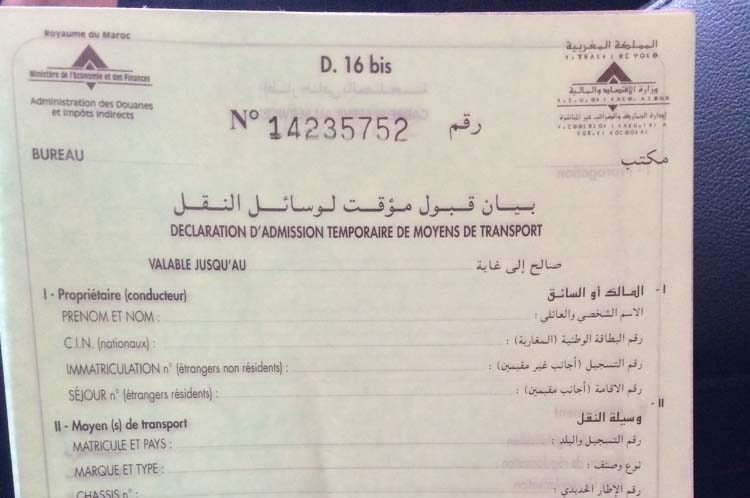 Royaume du Maroc
Ministère de l'Economie et des Finances
Administration des Douanes
et Impôts Indirects
D. 16 bis
المملكة المغربية
وزارة الاقتصاد والمالية
إدارة الجمارك والضرائب غير المباشرة
N° 14235752 رقم
BUREAU مكتب
بيان قبول مؤقت لوسائل النقل
DECLARATION D'ADMISSION TEMPORAIRE DE MOYENS DE TRANSPORT
VALABLE JUSQU'AU صالح إلى غاية
I - Propriétaire (conducteur) I - المالك أو السائق
PRENOM ET NOM : الاسم الشخصي والعائلي :
C.I.N (nationaux) : رقم البطاقة الوطنية (المغاربة) :
IMMATRICULATION n° (étrangers non résidents) : رقم التسجيل (أجانب غير مقيمين) :
SÉJOUR n° (étrangers résidents) رقم الاقامة (أجانب مقيمين) :
II - Moyen (s) de transport II - وسيلة النقل
MATRICULE ET PAYS : رقم التسجيل والبلد :
MARQUE ET TYPE : نوع وصنف :
CHASSIS n° : رقم الإطار الحديدي :